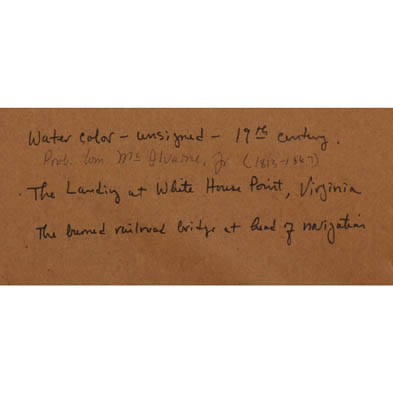 Water color – unsigned – 19th century.
Prob. Wm Mc Ilvaine, Jr (1813-1867)
· The Landing at White House Point, Virginia
· The burned railroad bridge at head of navigation